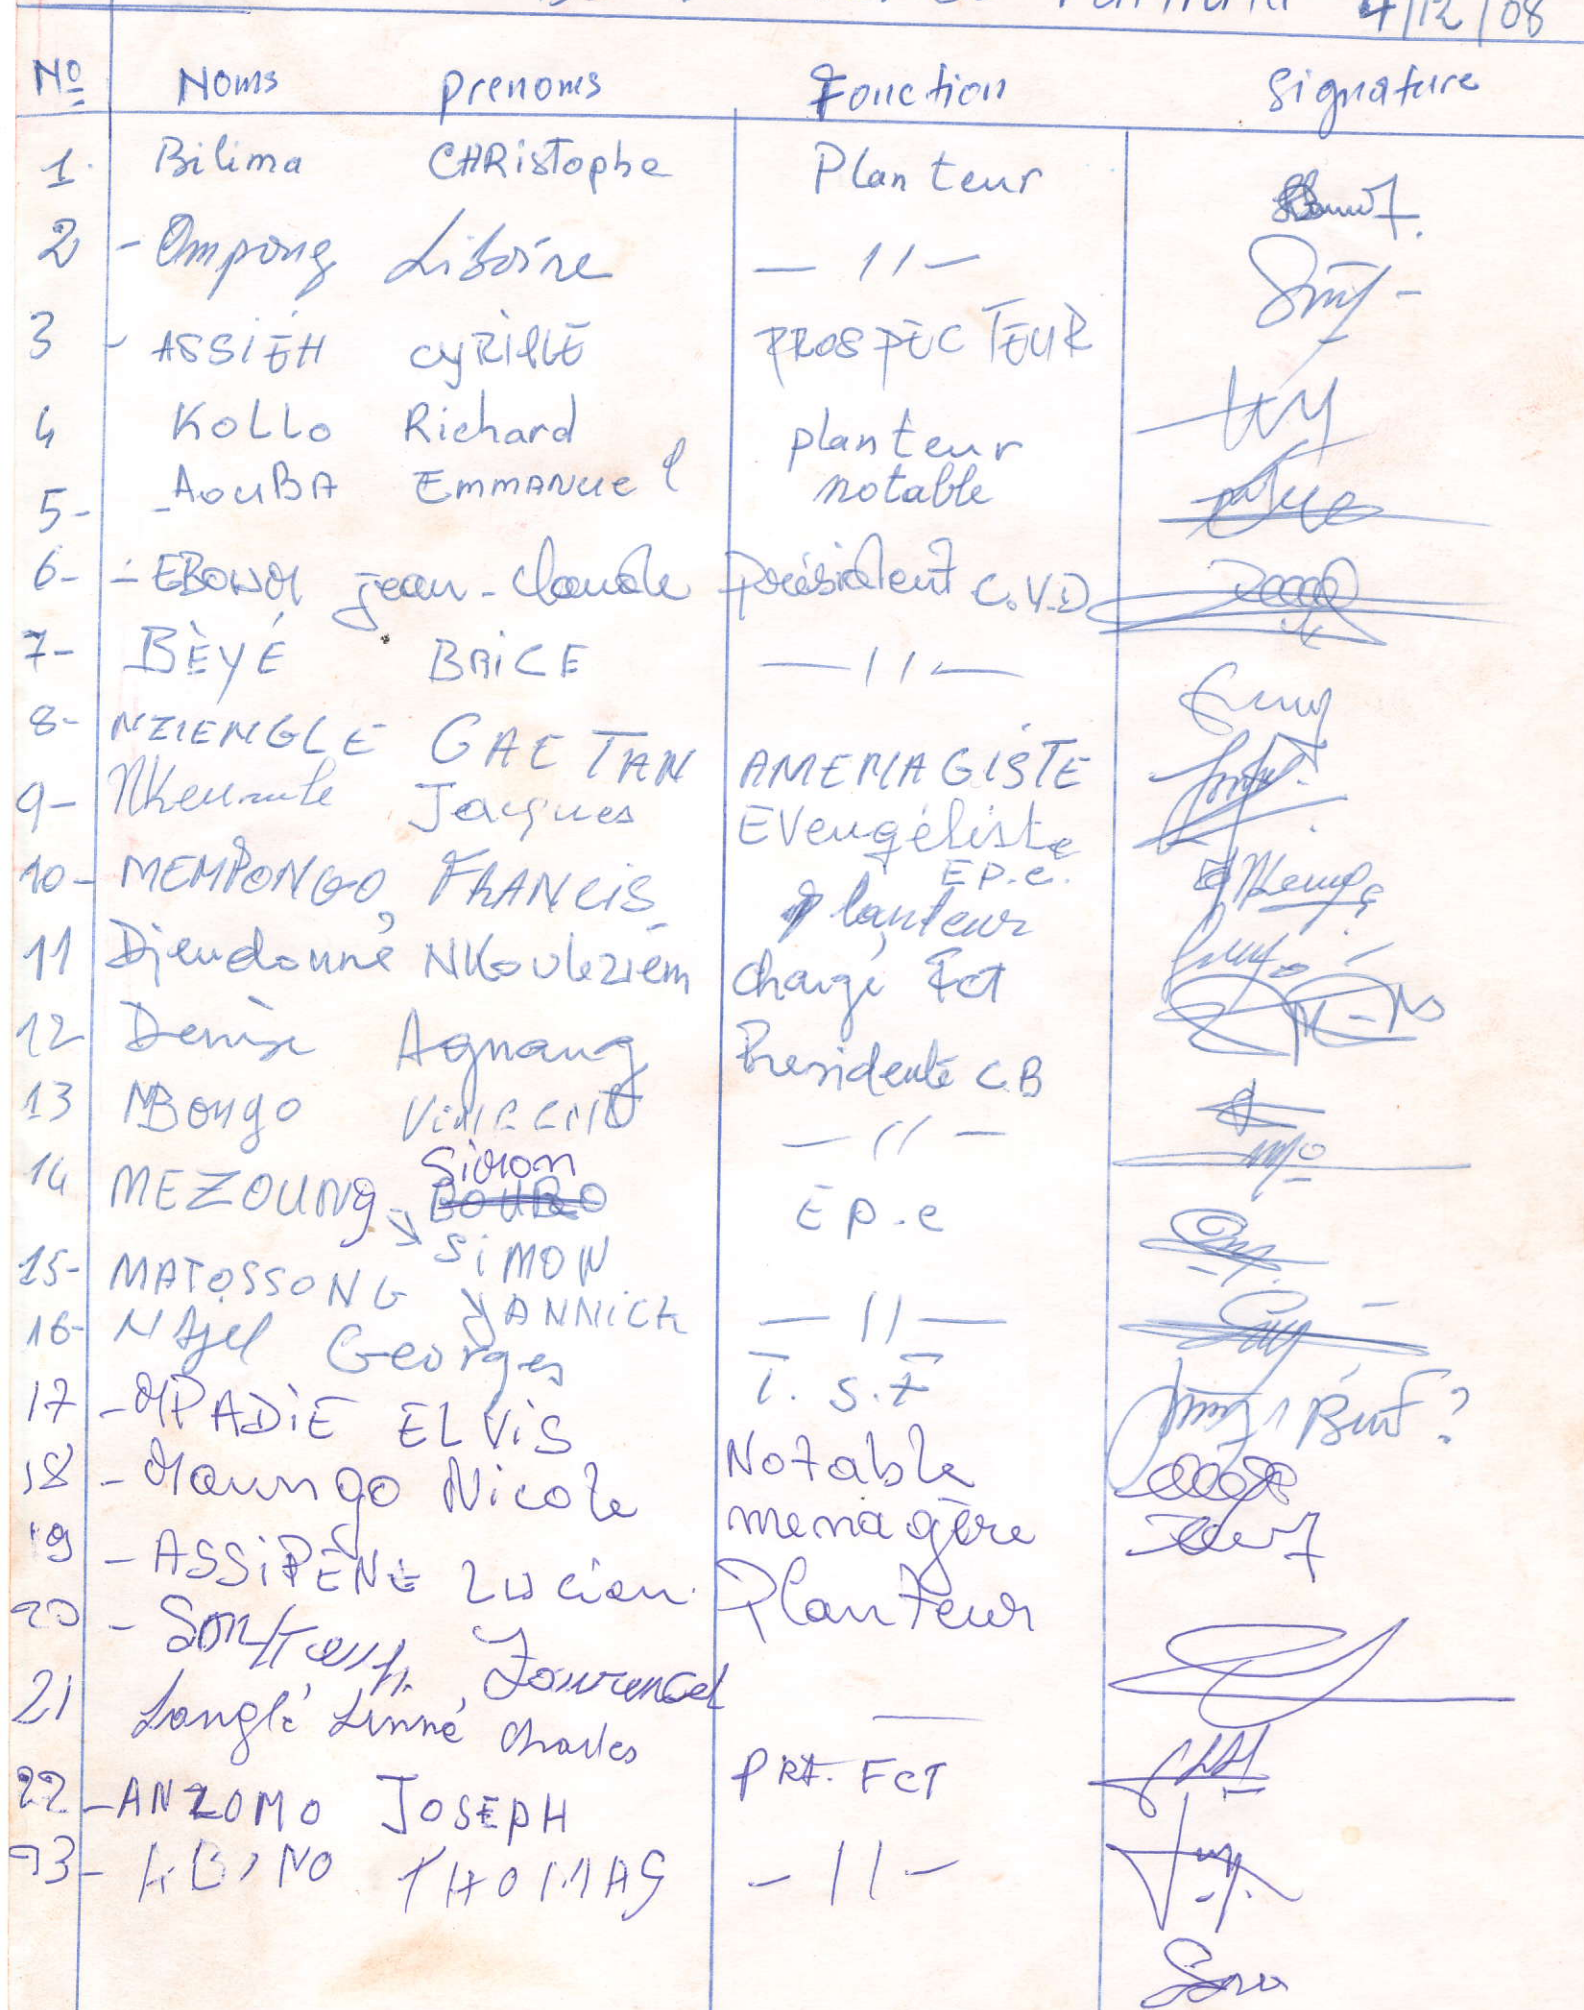 4/12/08
No Noms prenoms Fonction Signature
1. Bilima CHRistophe Planteur
2 - Ompong Liboire — // —
3 - ASSIÉH CYRILLE PROSPECTEUR
4 KOLLO Richard planteur
5- - AouBA EMMANUEl notable
6- - EBOWOI jean-claude président C.V.D
7- BÈYÉ BRICE — // —
8- NZIENGLE GAETAN AMENAGISTE
9- Jacques EVengéliste
EP.C.
10- MEMPONGO, FRANCIS planteur
11 Djeudonné NKouleziem chargé Fct
12 Denise Agnang Presidente C.B
13 NBongo Vincent — // —
14 MEZOUNG Simon EP.C
SIMON
15- MATOSSONG YANNICK — // —
16- NAjel Georges T.S.F
17 - MPADIE ELVIS Notable
18 - Moungo Nicole menagère
19 - ASSIPÈNE Lucien Planteur
20 -
21 Longlé Linné Charles PRT. FCT
22 - ANZOMO JOSEPH — // —
23 - THOMAS